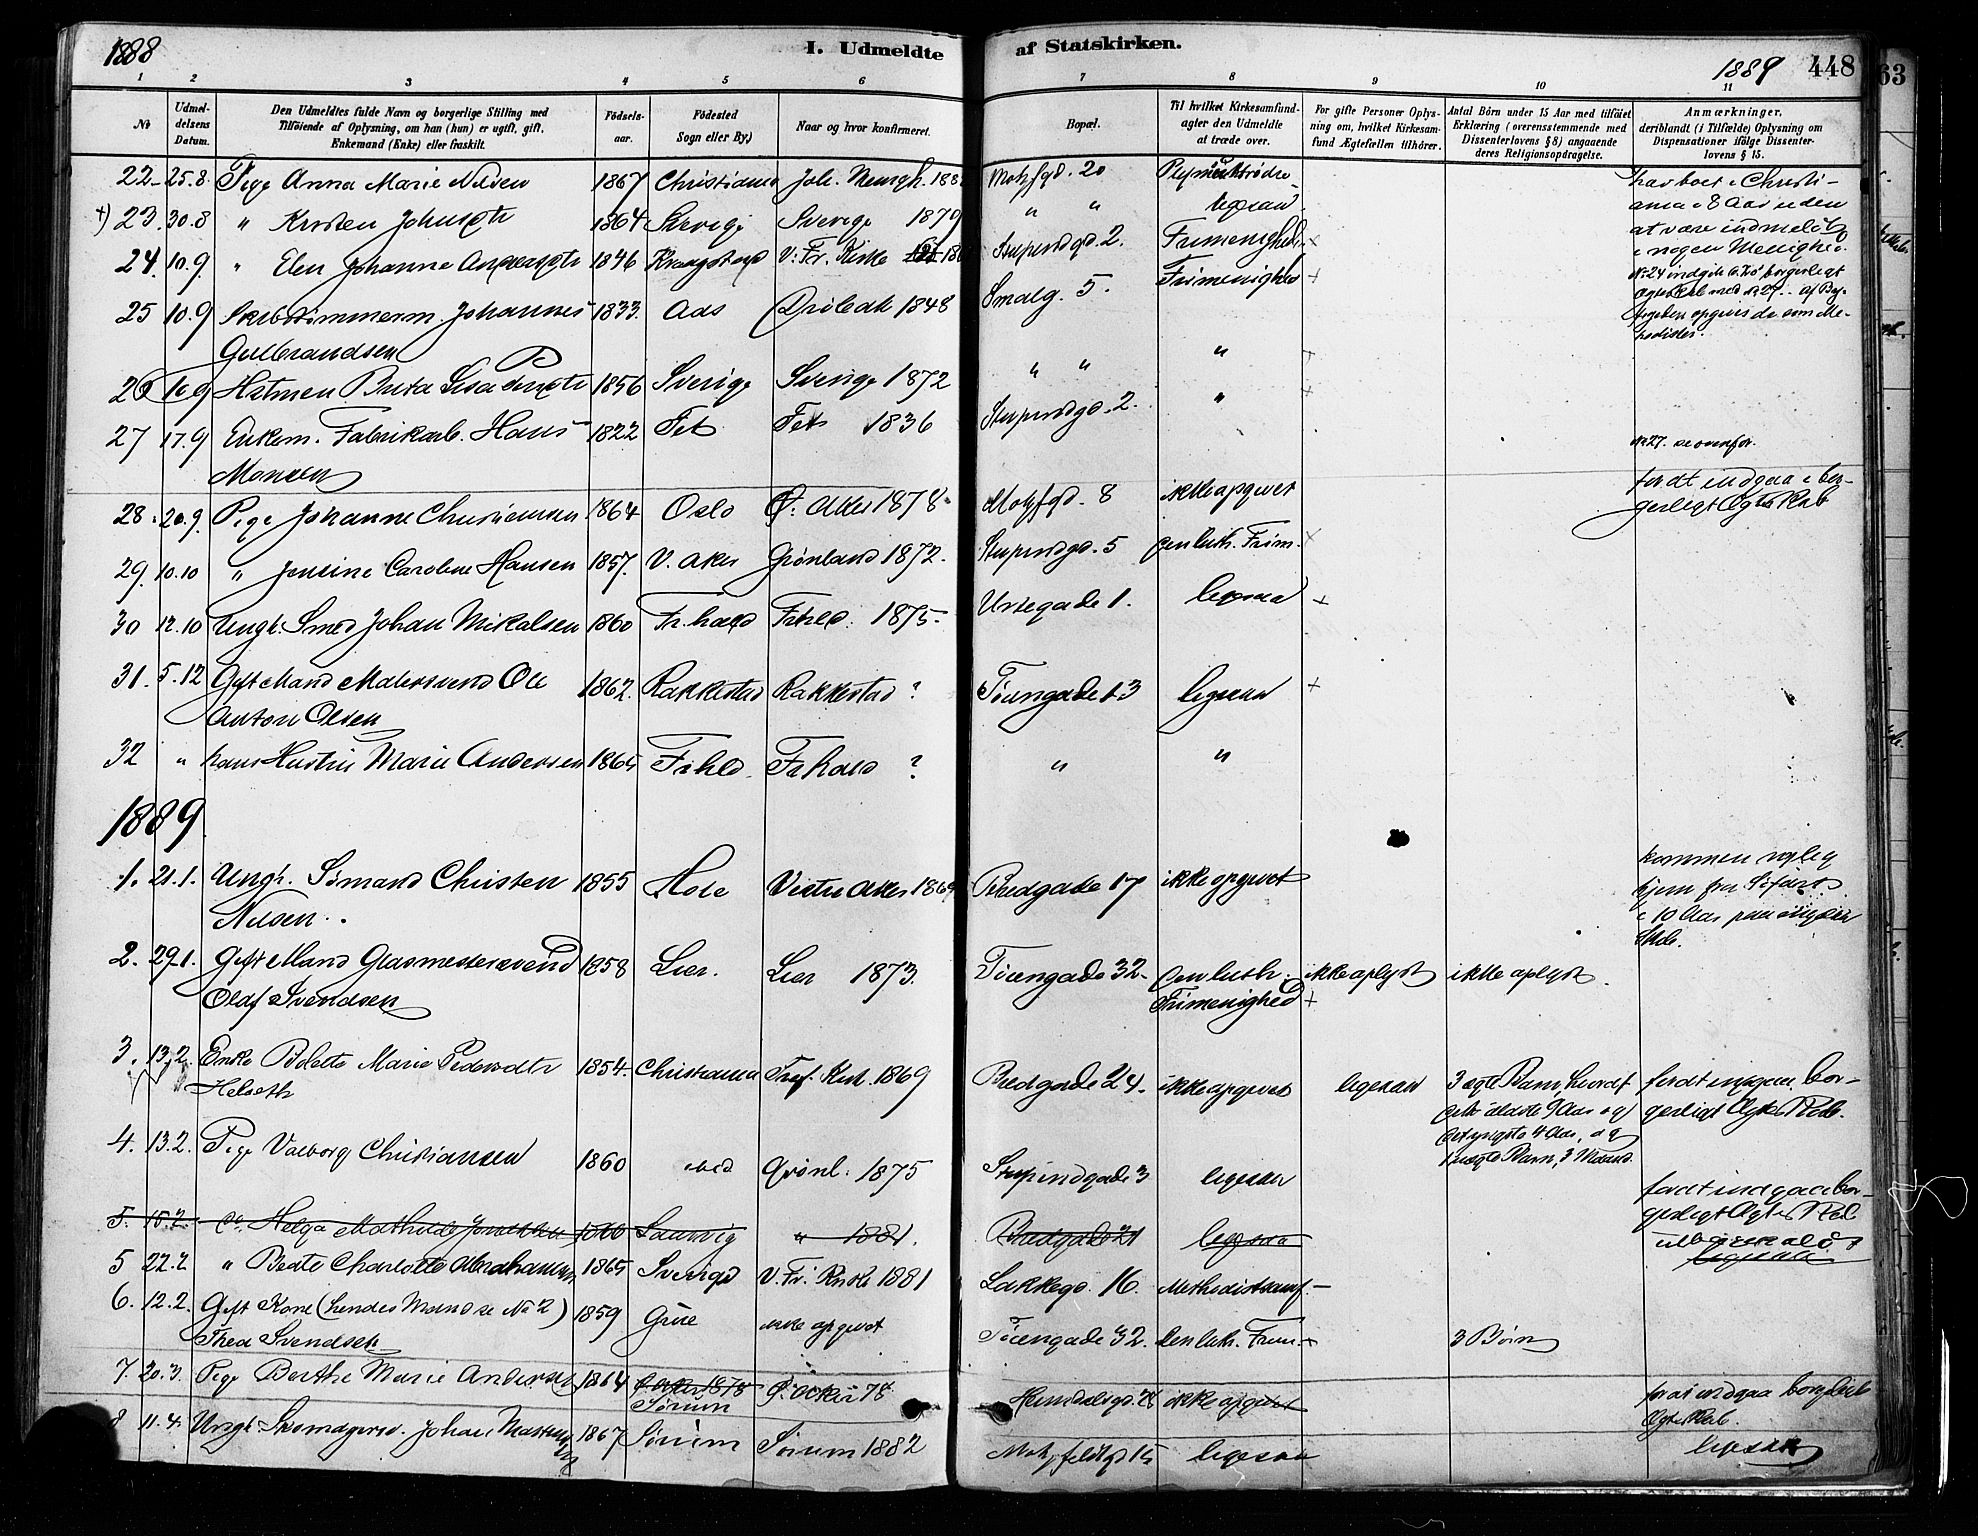 1888
I. Udmeldte af Statskirken.
1889
448
63
1 2 3 4 5 6 7 8 9 10 11
No
Udmel-
delsens
Datum.
Den Udmeldtes fulde Navn og borgerlige Stilling med
Tilföiende af Oplysning, om han (hun) er ugift, gift,
Enkemand (Enke) eller fraskilt.
Födsels-
aar.
Födested
Sogn eller By.)
Naar og hvor konfirmeret.
Bopæl.
Til hvilket Kirkesamfund
agter den Udmeldte
at træde over.
For gifte Personer Oplys-
ning om, hvilket Kirkesam-
fund Ægtefællen tilhörer.
Antal Börn under 15 Aar med tilföiet
Erklæring (overensstemmende med
Dissenterlovens § 8) angaaende
deres Religionsopdragelse.
Anmærkninger,
deriblandt (i Tilfælde) Oplysning om
Dispensationer ifölge Dissenter-
lovens § 15.
22 25.8. Pige Anna Marie Nilsen 1867 Christiania Joh. Menigh. Motzfgd. 20 Plymouthbrødre
har boet i Christi-
ania i 8 Aar uden
at være indmeldt
i nogen Menighed.
23. 30.8 " Kirsten Johnsdtr 1864 Sverige Sverige 1879 " " ligesaa
24. 10.9. " Elen Johanne Andersdtr 1846 Kraagstad V: Fr. Kirke Stupindgd. 2. Frimenighed +
No 24 indgik borgerligt
Ægteskab med No 27.
25 10.9 Skibstømmerm. Johannes 1833. Aas Drøbak 1848 Smalg. 5. Frimenighed +
Gulbrandsen
26 10.9 Hustruen Berta Lisa 1856 Sverige Sverige 1872 " " " +
27 17.9 Enkem. Fabrikarb. Hans 1822 Fet Fet 1836 Stupindgd. 2. " +
Monsen
No 27. se ovenfor.
28. 20.9. Pige Johanne Christiansen 1864 Oslo Ø: Aker 1878 Motzfgd. 8 ikke opgivet
for at indgaa i bor-
gerligt Ægteskab
29. 10.10 " Jensine Caroline Hansen 1857. V. Aker Grønland 1872. Stupindgd. 5 den luth. Frim. +
30 12.10 Ungk. Smed Johan Mikalsen 1860 Fr.hald Frhld. 1875 Urtegade 1. ligesaa +
31. 5.12 Gift Mand Malersvend Ole 1862. Rakkestad Rakkestad ? Tøiengade 13 ligesaa +
Anton Olsen
32 " hans Hustru Marie Andersen 1865 Frhld. Frhald ? " "
1889
1. 21.1. Ungk. Sømand Christen 1855 Hole Vestre Aker 1869 Bredgade 17 ikke opgivet
Nilsen.
kommen nylig
hjem fra Søfart
i 10 Aar paa
Skib.
2. 29.1. Gift Mand Glasmestersvend 1858 Lier. Lier 1873. Tøiengade 32. Den luth. ikke oplyst ikke oplyst.
Olaf Svendsen Frimenighed +
3. 13.2. Enke Bolette Marie Pedersdtr 1854. Christiania Tref. Kirk. 1869 Bredgade 24. ikke opgivet ligesaa
Helseth
3 ægte Barn, hvoraf
det ældste 9 Aar og
det yngste 4 Aar, og
1 uægte Barn, 3 Maaned.
for at indgaa bor-
gerligt Ægteskab.
4. 13.2. Pige Valborg Christiansen 1860 Grønl. 1875 Stupindgade 3 ligesaa
for at indgaa bor-
gerligt Ægteskab
5. 15.2. Do. Helga Mathilde Laurvig " 1881. Bredgade 21 ligesaa
ligesaa
5 22.2 " Beate Charlotte Abrahamsen 1865 Sverige V. Fr. Kirke 1881 Lakkegd. 16. Methodistsamf.
6. 12.2. Gift Kone (hendes Mand se No 2) 1859 Grue ikke opgivet Tøiengade 32. Den luth. Frim. + 3 Børn
Thea Svendsen
7. 20.3. Pige Berthe Marie Andersen 1864 Ø. Aker 1878 Ø. Aker 78 Heimdalsgd. ikke opgivet
Sørum
for at indgaa borgerligt
Ægteskab.
8 11.4. Ungk. Skomagersv. Johan 1867 Sørum Sørum 1882 Motzfeldtgd 15 ligesaa ligesaa